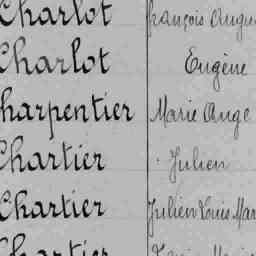 Charlot François Augu
Charlot Eugène
Charpentier Marie Ange
Chartier Julien
Chartier Julien Louis Mar
Chartier Louis